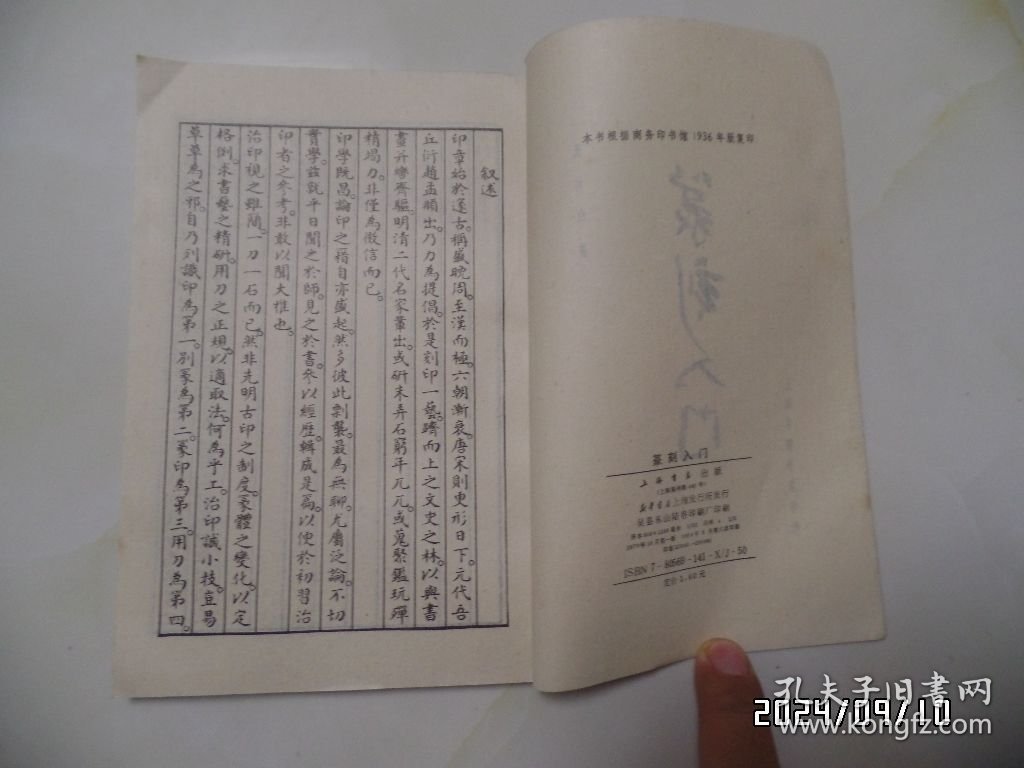 叙述
印章始於邃古。稱盛晚周。至漢而極。六朝漸衰。唐宋則更形日下。元代吾
丘衍趙孟頫出。乃力為提倡。於是刻印一藝。躋而上之文史之林。以與書
畫并轡齊驅。明清二代名家輩出。或研朱弄石窮年兀兀。或蒐聚鑑玩殫
精竭力。非僅為徵信而已。
印學既昌。論印之籍自亦盛起。然多彼此剿襲。最為無聊。尤屬泛論。不切
實學。茲就平日聞之於師。見之於書。參以經歷輯成是篇。以便於初習治
印者之參考。非敢以聞大雅也。
治印視之雖簡。一刀一石而已。然非先明古印之制度。篆體之變化。以定
格例。求書藝之精研。用刀之正規。以適取法。何為乎工。治印誠小技。豈易
草草為之邪。自乃列識印為第一。別篆為第二。篆印為第三。用刀為第四。
本书根据商务印书馆1936年版复印
篆刻入门
上海书店出版
新华书店上海发行所发行
吴县东山陆巷印刷厂印刷
ISBN 7-80569-141-X/J·50
定价1.60元
孔夫子旧书网
www.kongfz.com
2024/09/10